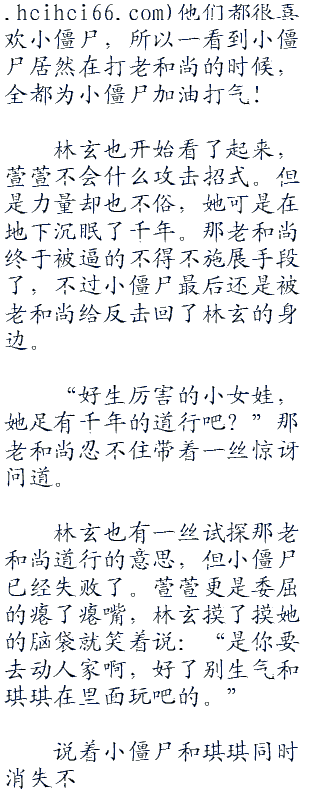 .hcihci66.com)他们都很喜
欢小僵尸，所以一看到小僵
尸居然在打老和尚的时候，
全都为小僵尸加油打气！
林玄也开始看了起来，
萱萱不会什么攻击招式。但
是力量却也不俗，她可是在
地下沉眠了千年。那老和尚
终于被逼的不得不施展手段
了，不过小僵尸最后还是被
老和尚给反击回了林玄的身
边。
“好生厉害的小女娃，
她足有千年的道行吧？”那
老和尚忍不住带着一丝惊讶
问道。
林玄也有一丝试探那老
和尚道行的意思，但小僵尸
已经失败了。萱萱更是委屈
的瘪了瘪嘴，林玄摸了摸她
的脑袋就笑着说：“是你要
去动人家啊，好了别生气和
琪琪在里面玩吧的。”
说着小僵尸和琪琪同时
消失不